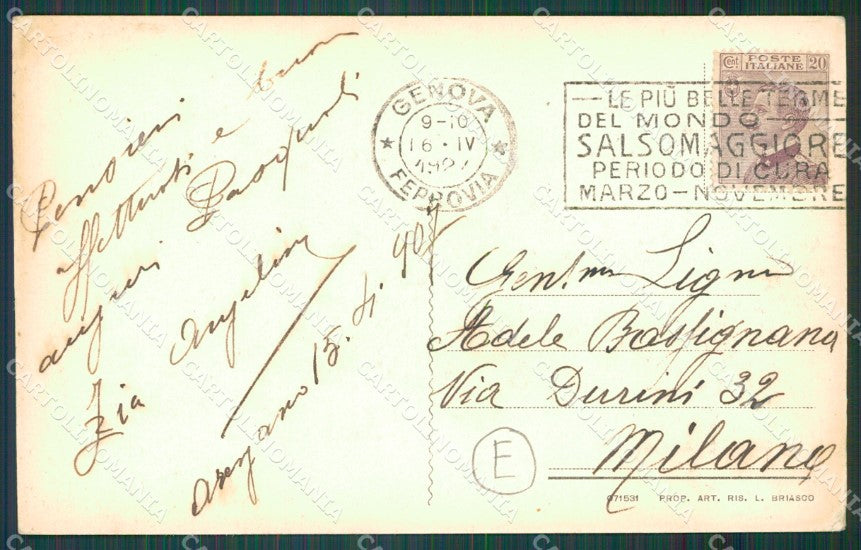 Pensieri
affettuosi e buon
auguri Pasquali
Zia Angelina
15. 4. 907
GENOVA
9-10
16·IV
1927
FERROVIA
LE PIÙ BELLE TERME
DEL MONDO
SALSOMAGGIORE
PERIODO DI CURA
MARZO–NOVEMBRE
Cent POSTE ITALIANE 20
Gent.ma Sign.a
Adele Bassignana
Via Durini 32
Milano
E
071531 PROP. ART. RIS. L. BRIASCO
CARTOLINOMANIA